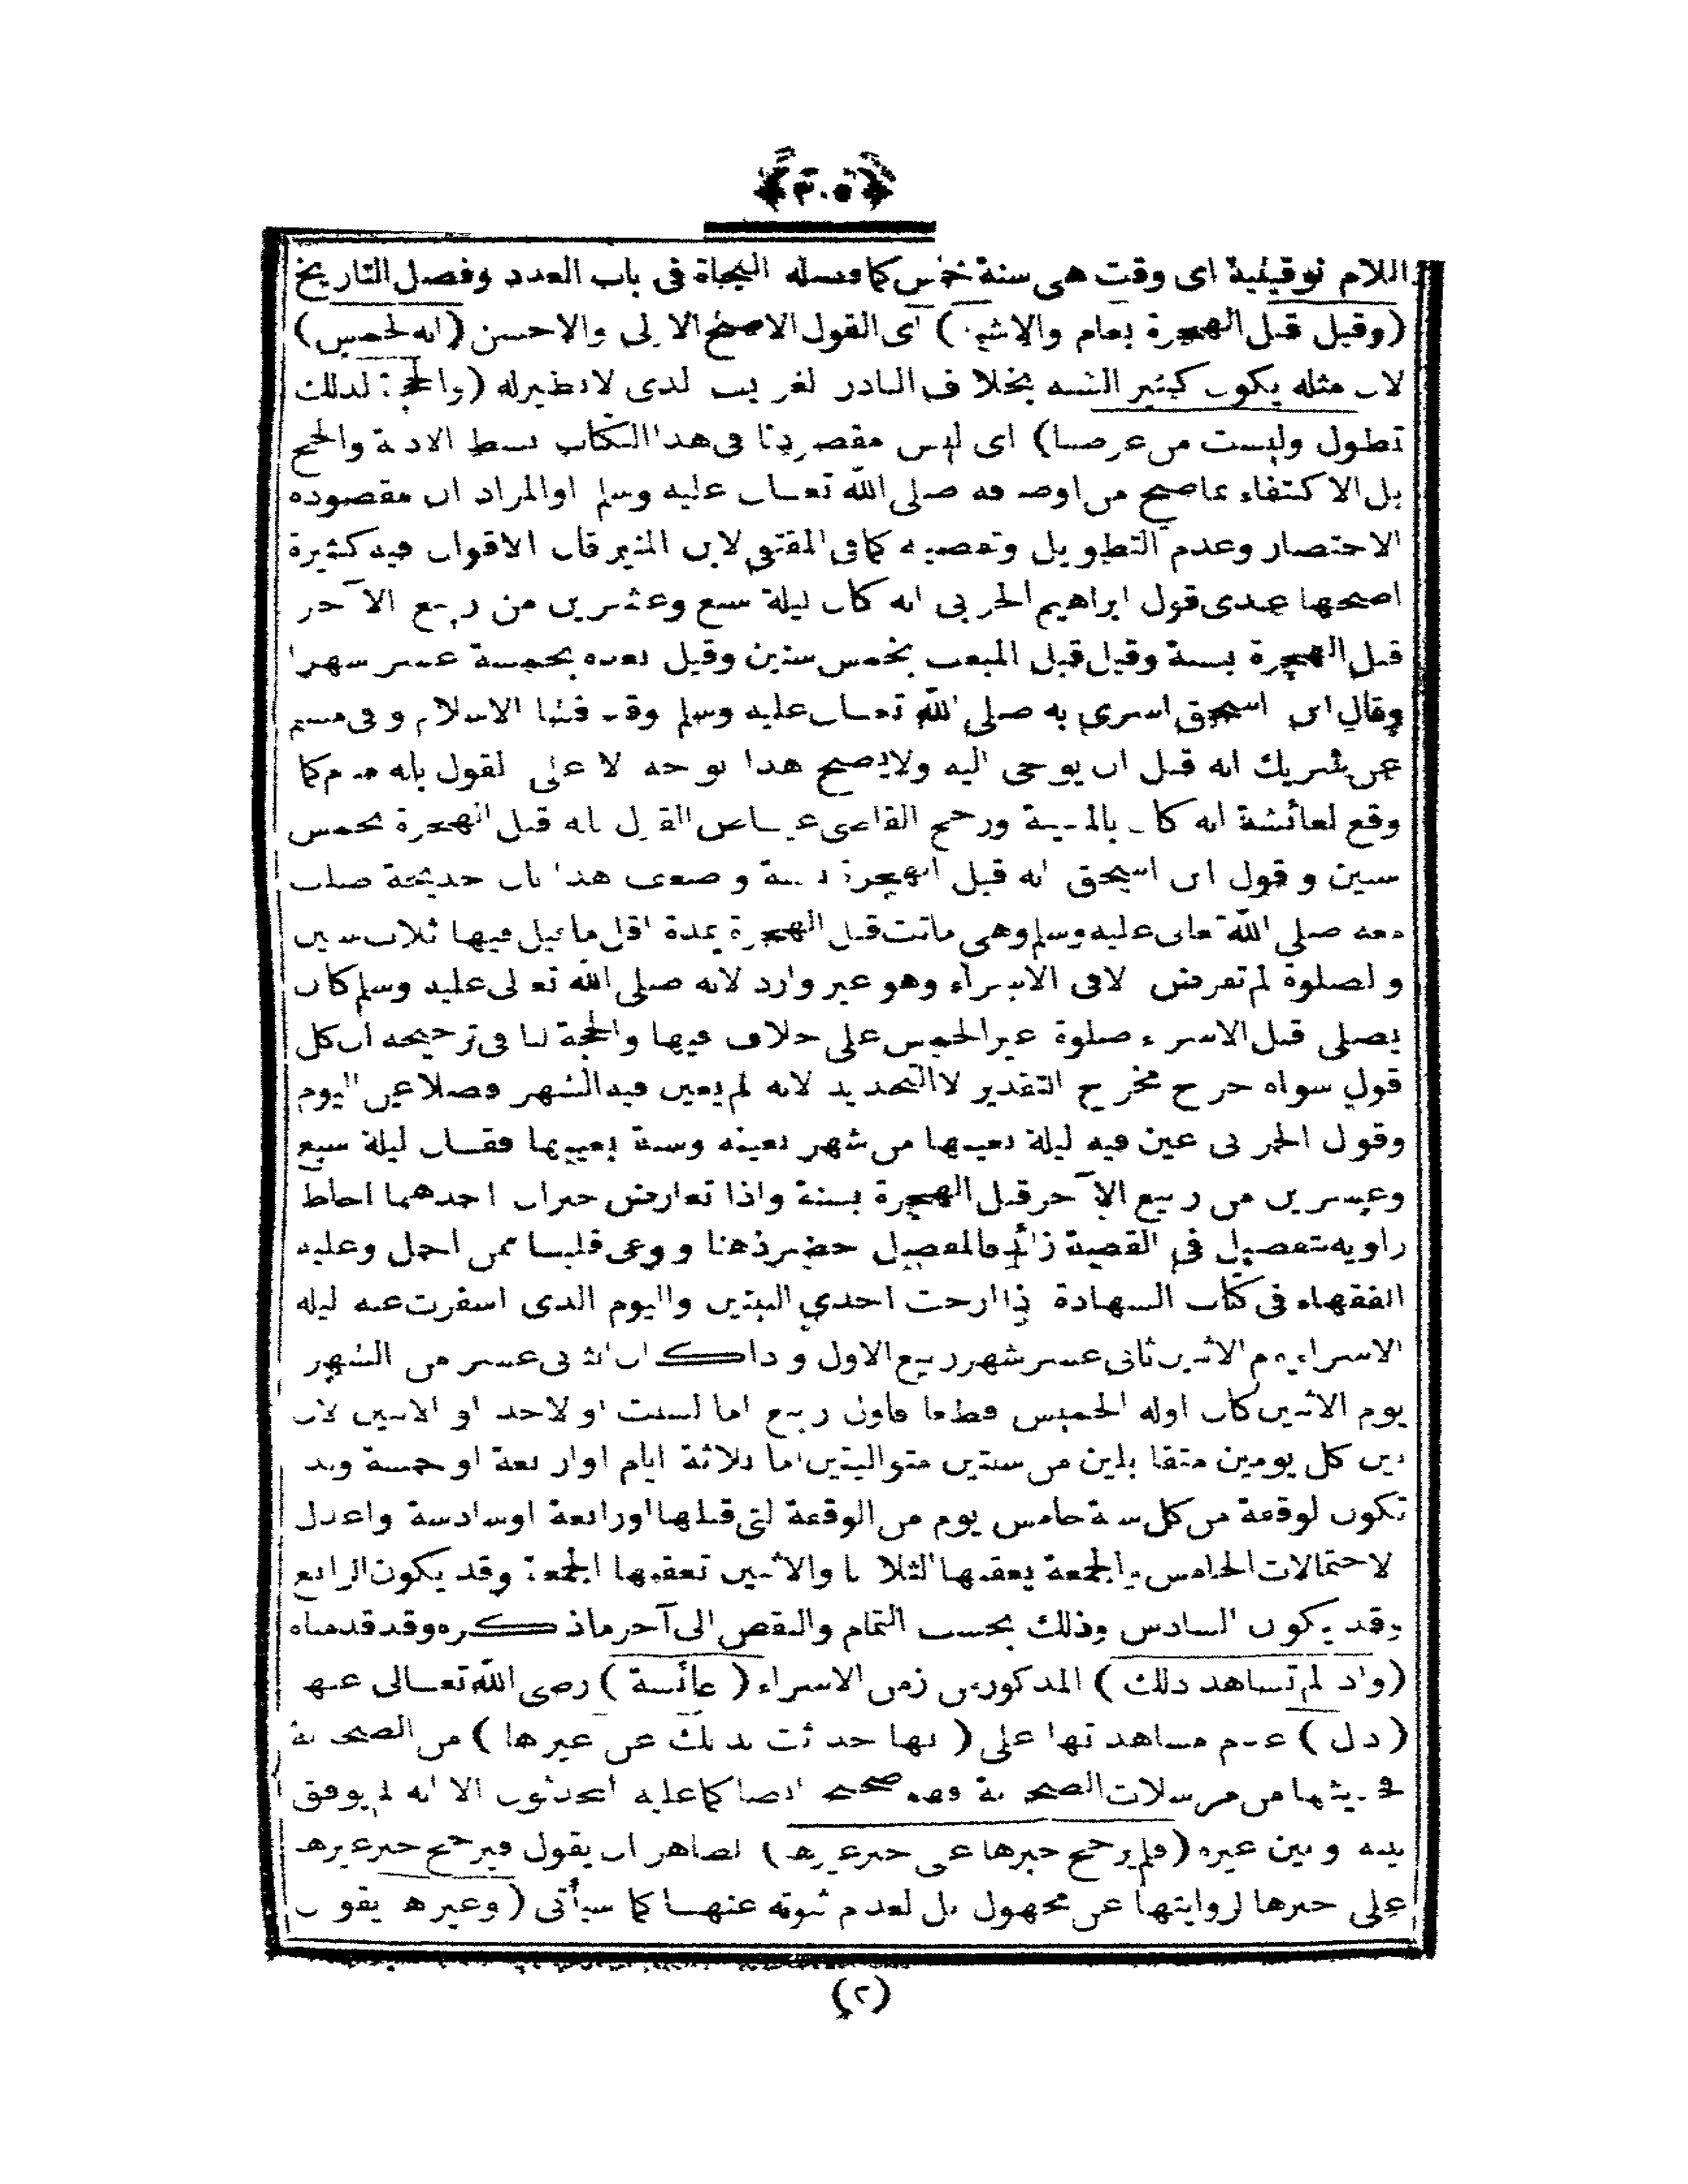 ﴿٣٠٥﴾
اللام توقيتية اى وقت هى سنة خمس كما فصله النحاة فى باب العدد وفصل التاريخ
(وقيل قبل الهجرة بعام والاشبه) اى القول الاصح الاولى والاحسن (انه لخمس)
لان مثله يكون كثير الشبه بخلاف النادر الغريب الذى لانظيرله (والحجة لذلك
تطول وليست من غرضنا) اى ليس مقصودنا فى هذا الكتاب بسط الادلة والحجج
بل الاكتفاء بماصح من اوصافه صلى الله تعالى عليه وسلم اوالمراد ان مقصوده
الاختصار وعدم التطويل وتفصيله كما فى المقتفى لابن المنير قال الاقوال فيه كثيرة
اصحها عندى قول ابراهيم الحربى انه كان ليلة سبع وعشرين من ربيع الآخر
قبل الهجرة بسنة وقيل قبل المبعث بخمس سنين وقيل بعده بخمسة عشر شهرا
وقال ابن اسحق اسرى به صلى الله تعالى عليه وسلم وقد فشا الاسلام وفى مسلم
عن شريك انه قبل ان يوحى اليه ولايصح هذا بوجه الا على القول بانه منام كما
وقع لعائشة انه كان بالمدينة ورجح القاضى عياض القول بانه قبل الهجرة بخمس
سنين وقول ابن اسحق انه قبل الهجرة بسنة وضعف هذا بان خديجة صلت
معه صلى الله تعالى عليه وسلم وهى ماتت قبل الهجرة بمدة اقل ماقيل فيها ثلاث سنين
والصلوة لم تفرض الافى الاسراء وهو غير وارد لانه صلى الله تعالى عليه وسلم كان
يصلى قبل الاسراء صلوة غير الخمس على خلاف فيها والحجة لنا فى ترجيحه ان كل
قول سواه خرج مخرج التقدير لاالتحديد لانه لم يعين فيه الشهر فضلا عن اليوم
وقول الحربى عين فيه ليلة بعينها من شهر بعينه وسنة بعينها فقال ليلة سبع
وعشرين من ربيع الآخر قبل الهجرة بسنة واذا تعارض خبران احدهما احاط
راويه بتفصيل فى القصية زائد فالمفصل حضر ذهنا ووعى قلبا ممن اجمل وعليه
الفقهاء فى كتاب الشهادة اذا ارخت احدى البينتين واليوم الذى اسفرت عنه ليلة
الاسراء يوم الاثنين ثانى عشر شهر ربيع الاول واذا كان الثانى عشر من الشهر
يوم الاثنين كان اوله الخميس قطعا فاول ربيع اما السبت او الاحد او الاثنين لان
بين كل يومين متقابلين من سنتين متواليتين اما ثلاثة ايام اواربعة او خمسة وقد
تكون الوقفة من كل سنة خامس يوم من الوقفة التى قبلها اورابعة اوسادسة واعدل
الاحتمالات الخامس والجمعة يعقبها الثلاثا والاثنين تعقبها الجمعة وقد يكون الرابع
وقد يكون السادس وذلك بحسب التمام والنقص الى آخر ماذكره وقد قدمناه
(واذ لم تشاهد ذلك) المذكور من زمن الاسراء (عائشة) رضى الله تعالى عنها
(دل) عدم مشاهدتها على (انها حدثت بذلك عن غيرها) من الصحابة
فحديثها من مرسلات الصحابة وهو صحيح ايضا كما عليه المحدثون الا انه لم يوفق
بينه وبين غيره (فلم يرجح خبرها على خبر غيرها) الظاهر ان يقول فيرجح خبر غيرها
على خبرها لروايتها عن مجهول بل لعدم ثبوته عنها كما سيأتى (وغيرها يقول
(٢)